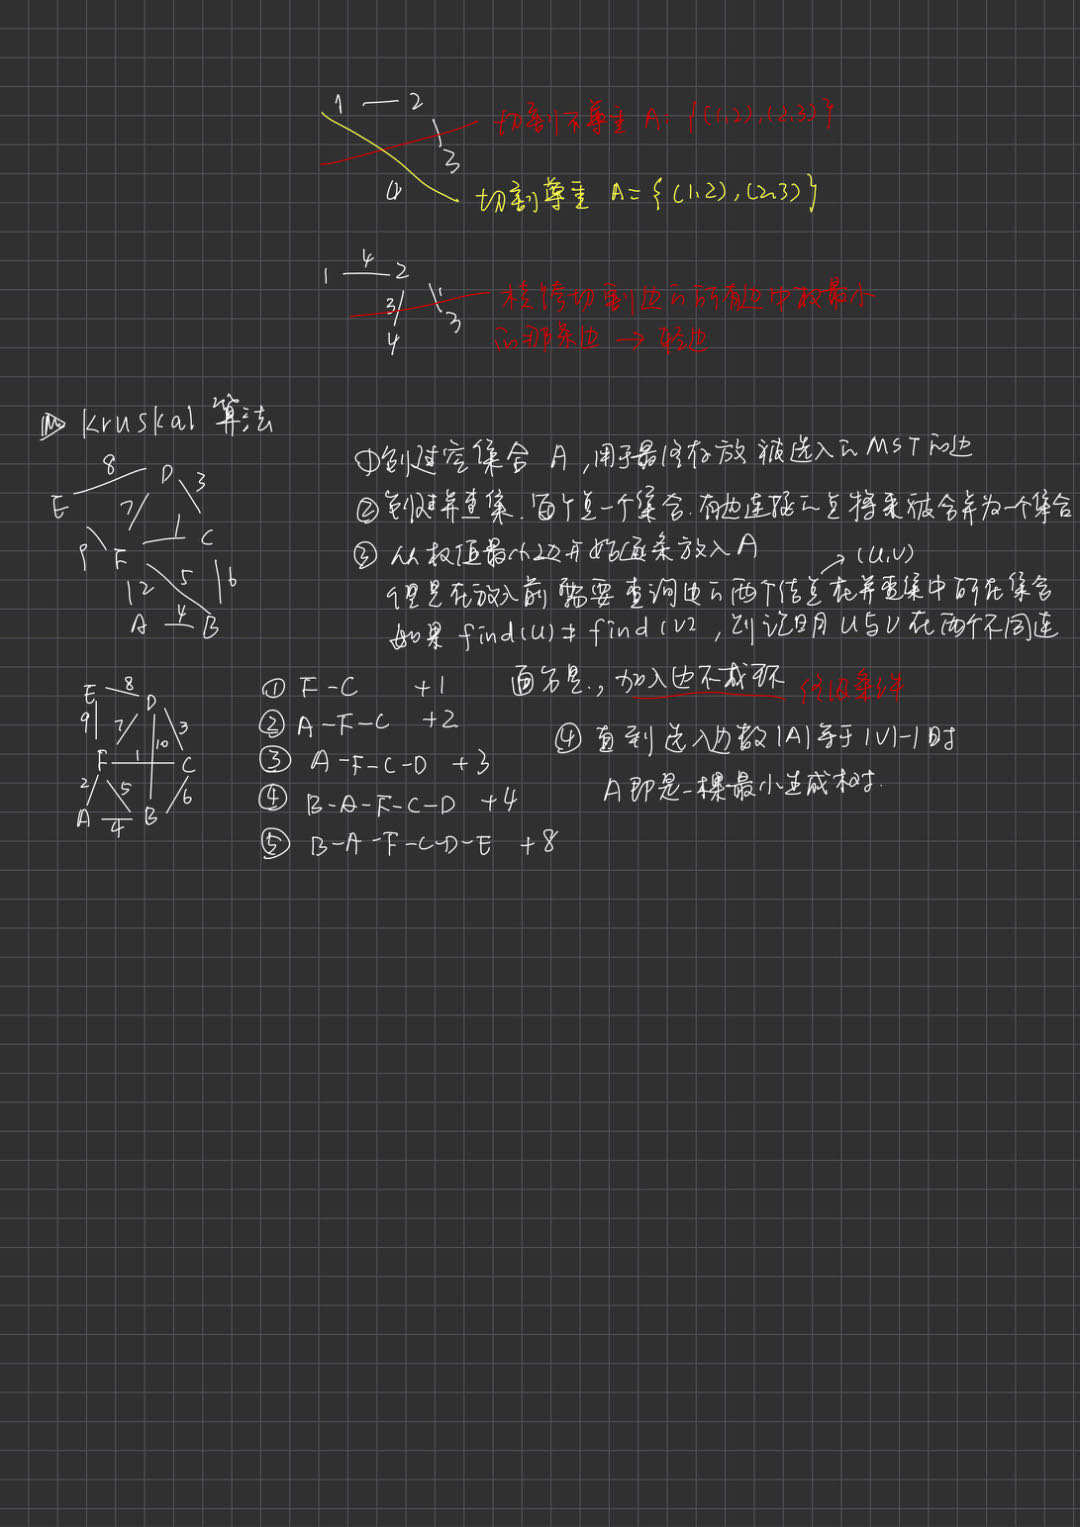 1 — 2
切割不尊重 A: {(1,2),(2,3)}
3
4
切割尊重 A={(1,2),(2,3)}
1 4 2
3 1
3
4
横跨切割边的所有边中权最小
的那条边 → 轻边
Kruskal 算法
8 D 3
E 7 1 C
9 F
2 5 6
A 4 B
①创建空集合 A,用于最终存放被选入的MST的边
②创建并查集.每个点一个集合.有边连接的点将来被合并为一个集合
③从权值最小边开始逐条放入A
(u,v)
但是在放入前需要查询边的两个结点在并查集中所在集合
如果 find(u) ≠ find(v),则说明u与v在两个不同连
通分量.,加入边不成环
④直到选入边数|A|等于|V|-1时
A即是一棵最小生成树.
E 8 D
9 7 10 3
F 1 C
2 5 6
A 4 B
① F-C +1
② A-F-C +2
③ A-F-C-D +3
④ B-A-F-C-D +4
⑤ B-A-F-C-D-E +8